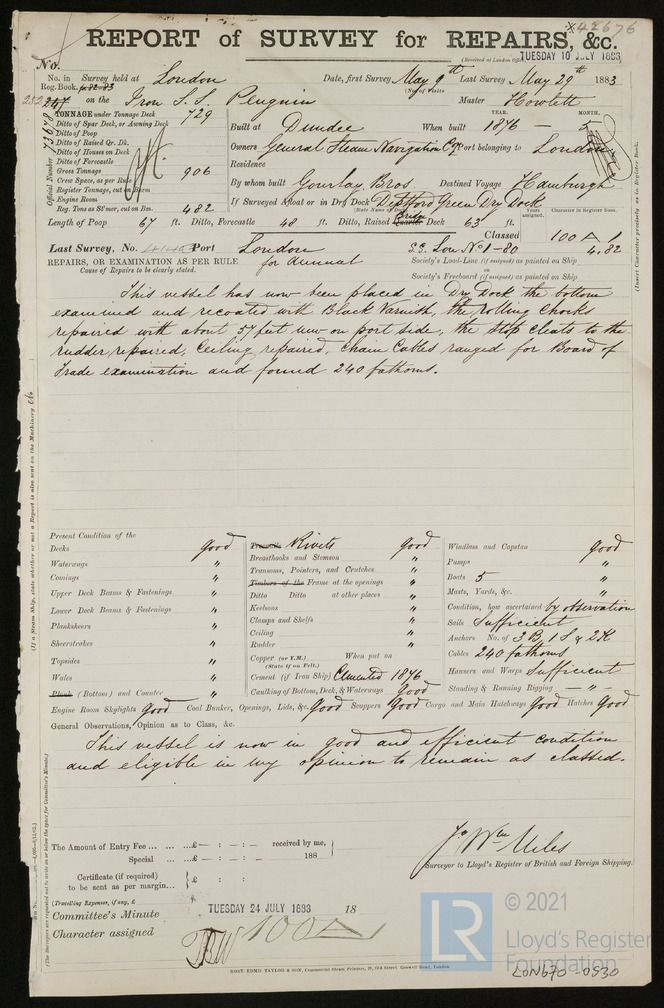 42676
REPORT of SURVEY for REPAIRS, &c.
(Received at London Office TUESDAY 10 JULY 1883
No.
No. in Reg. Book. Survey held at London Date, first Survey May 9th Last Survey May 29th 1883
(No. of Visits
on the Iron S.S. Penguin Master Howlett
Official Number 73678
TONNAGE under Tonnage Deck 729
Ditto of Spar Deck, or Awning Deck
Ditto of Poop
Ditto of Raised Qr. Dk.
Ditto of Houses on Deck
Ditto of Forecastle
Gross Tonnage 906
Crew Space, as per Rule
Register Tonnage, cut on Beam
Engine Room
Reg. Tons as St'mer, cut on Bm. 482
YEAR. MONTH.
Built at Dundee When built 1876 — 5
Owners General Steam Navigation Co. Port belonging to London
Residence
By whom built Gourlay Bros Destined Voyage Hamburgh
If Surveyed Afloat or in Dry Dock Deptford Green Dry Dock
(State Name of Dock)
Years assigned. Character in Register Book.
Length of Poop 67 ft. Ditto, Forecastle 48 ft. Ditto, Raised Quarter Bridge Deck 63 ft.
Classed 100 A 1
Last Survey, No. Port London S.S. Lon No 1-80 4,82
REPAIRS, OR EXAMINATION AS PER RULE for Annual
Cause of Repairs to be clearly stated.
Society's Load-Line (if assigned) as painted on Ship
on
Society's Freeboard (if assigned) as painted on Ship
(Insert Character precisely as in Register Book.
This vessel has now been placed in Dry Dock the bottom
examined and recoated with Black Varnish, the rolling Chocks
repaired with about 57 feet new on port side, the stop cleats to the
rudder repaired, Ceiling repaired. Chain Cables ranged for Board of
Trade examination and found 240 fathoms.
(If a Steam Ship, state whether or not a Report is also sent on the Machinery
Present Condition of the
Decks Good
Waterways "
Comings "
Upper Deck Beams & Fastenings "
Lower Deck Beams & Fastenings "
Planksheers "
Sheerstrakes "
Topsides "
Wales "
Plank (Bottom) and Counter "
Treenails Rivets Good
Breasthooks and Stemson "
Transoms, Pointers, and Crutches "
Timbers of the Frame at the openings "
Ditto Ditto at other places "
Keelsons "
Clamps and Shelfs "
Ceiling "
Rudder "
Copper (or Y.M.) When put on
(State if on Felt.)
Cement (if Iron Ship) Cemented 1876
Caulking of Bottom, Deck, & Waterways Good
Windlass and Capstan Good
Pumps "
Boats 5 "
Masts, Yards, &c. "
Condition, how ascertained by observation
Sails Sufficient
Anchors No. of 3 B, 1 S & 2 K
Cables 240 fathoms
Hawsers and Warps Sufficient
Standing & Running Rigging — " —
Engine Room Skylights Good Coal Bunker, Openings, Lids, &c. Good Scuppers Good Cargo and Main Hatchways Good Hatches Good
General Observations, Opinion as to Class, &c.
This vessel is now in good and efficient condition
and eligible in my opinion to remain as classed.
(The Surveyors are requested not to write on or below the space for Committee's Minute.)
The Amount of Entry Fee ... £ — : — : — received by me,
Special ... £ — : — : — 188
Certificate (if required) £ : :
to be sent as per margin...
(Travelling Expenses, if any, £
Jo Wm Miles
Surveyor to Lloyd's Register of British and Foreign Shipping.
Committee's Minute TUESDAY 24 JULY 1883 18
Character assigned 100A
© 2021
LR
Lloyd's Register
Foundation
LON670-0530